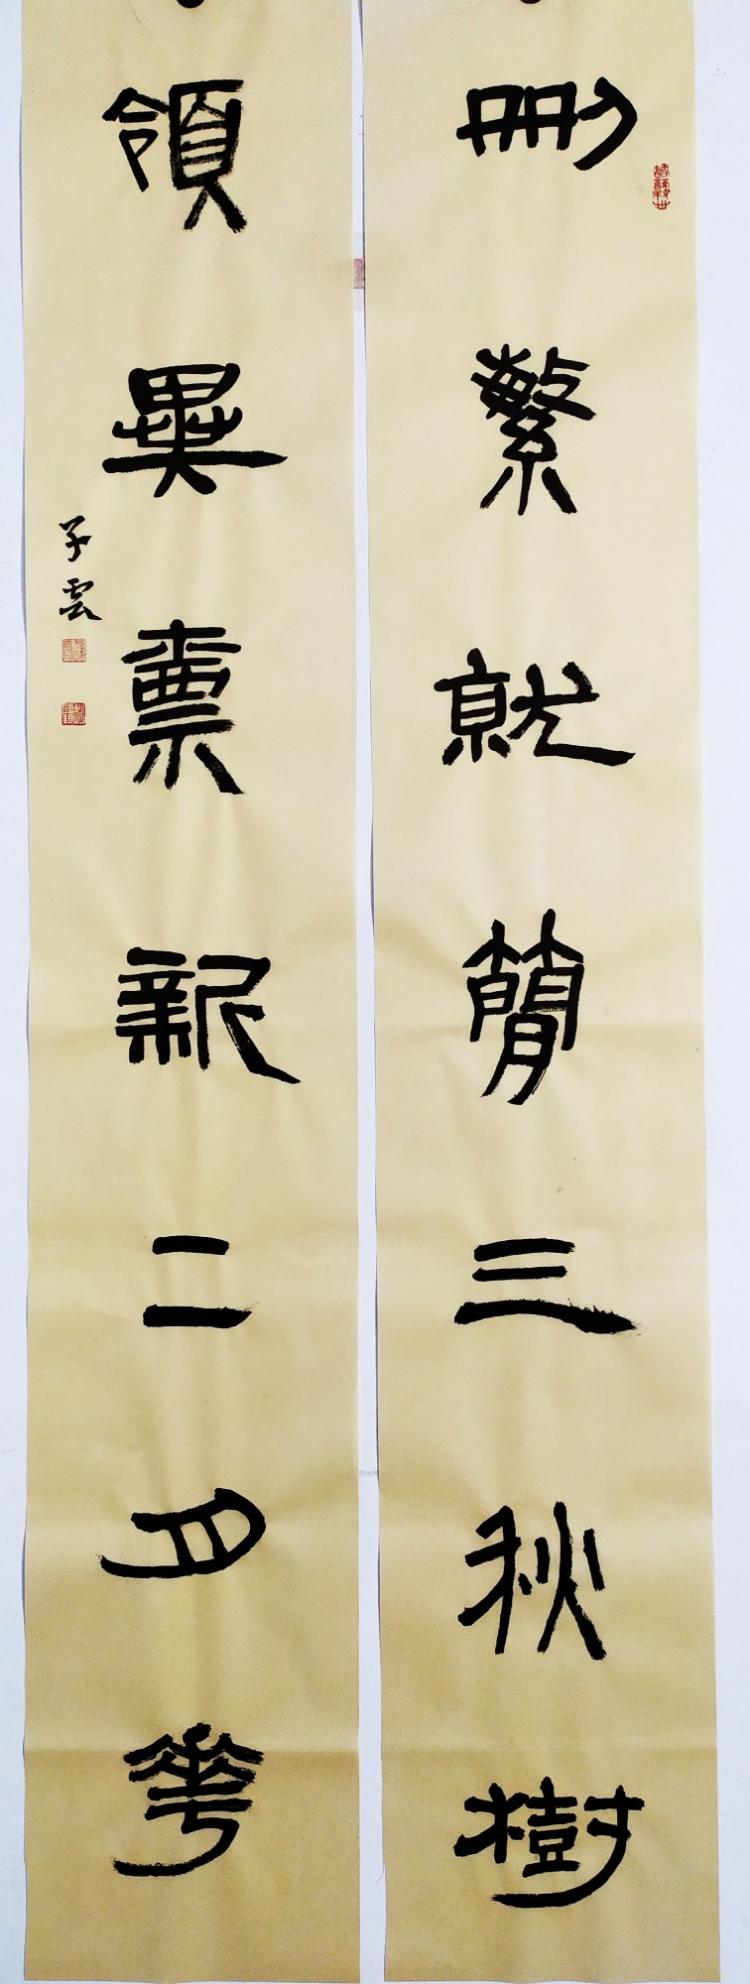 刪繁就簡三秋樹
領異標新二月華
子雲